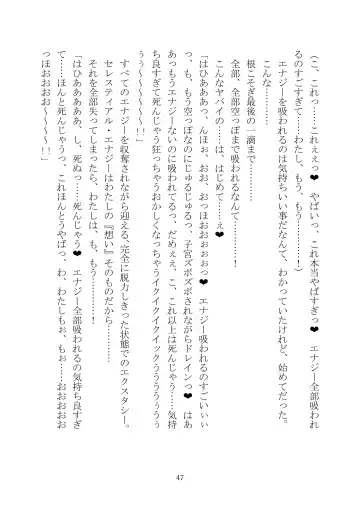 （こ、これっ……これぇっ❤　やばいっ、これ本当やばすぎっ❤　エナジー全部吸われ
るのすごすぎて……わたし、もう、もう……！）
エナジーを吸われるのは気持ちいい事だなんて、わかっていたけれど、始めてだった。
こんな……
根こそぎ最後の一滴まで………
全部、全部空っぽまで吸われるなんて………！
こんなヤバイの……は、はじめて……ぇ❤
「はひああああっ、んほぉ、おお、おっほおおぉぉっ❤　エナジー吸われるのすごいぃぃ
っ、も、もう空っぽなのにじゅるじゅるっ、子宮ズボズボされながらドレインっ❤　はあ
あっもうエナジーないのに吸われてるっ、だめぇぇ、こ、これ以上は死んじゃう……気持
ち良すぎて死んじゃう狂っちゃうおかしくなっちゃうイクイクイクイックうううううぅぅ
ぅぅ～～～～～！！」
すべてのエナジーを収奪されながら迎える、完全に脱力しきった状態でのエクスタシー。
セレスティアル・エナジーはわたしの『想い』そのものだから………
それを全部失ってしまったら、わたしは、も、もう……！
「はひあああああ、し、死ぬっ……死んじゃう❤　エナジー全部吸われるの気持ち良すぎ
て……ほんと死んじゃうっ、これほんとうやばっ、わ、わたしもぉ、もぉ……おおおおお
っほおおおお～～～～！！」
47